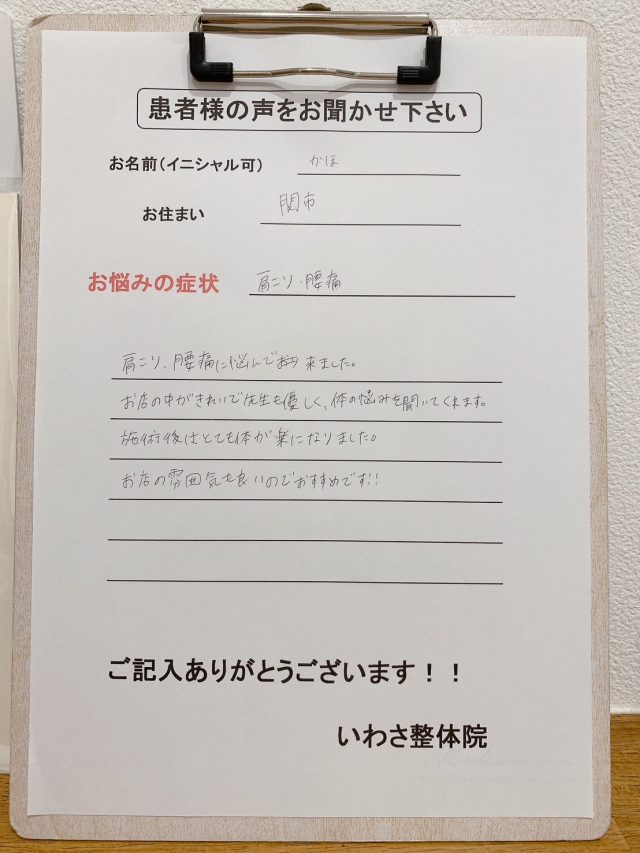 患者様の声をお聞かせ下さい
お名前(イニシャル可) かほ
お住まい 関市
お悩みの症状 肩こり、腰痛
肩こり、腰痛に悩んでおり来ました。
お店の中がきれいで先生も優しく、体の悩みを聞いてくれます。
施術後はとても体が楽になりました。
お店の雰囲気も良いのでおすすめです!!
ご記入ありがとうございます!!
いわさ整体院